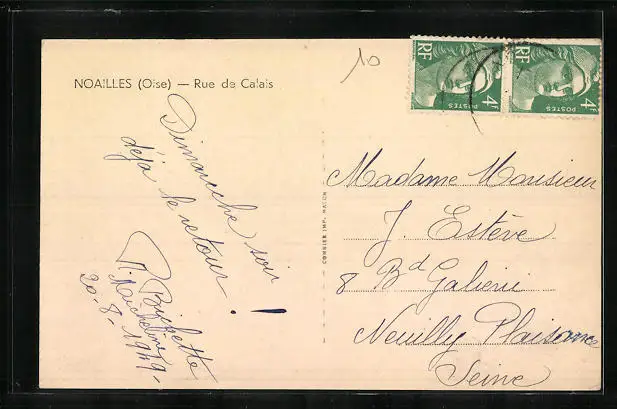 NOAILLES (Oise) — Rue de Calais
10
RF
POSTES
4F
RF
POSTES
4F
Dimanche soir
déjà le retour !
20-8-1949-
COMBIER IMP. MACON
Madame Monsieur
J. Estève
8 Bd Galieni
Neuilly Plaisance
Seine